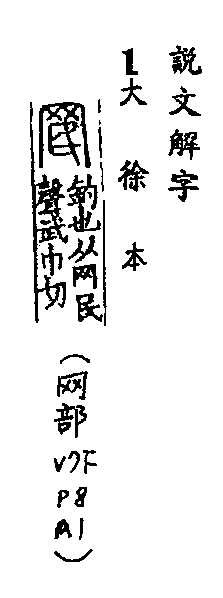 說文解字
1大徐本
罠 釣也从网民
聲武巾切
(网部 V7下 P8 A1)